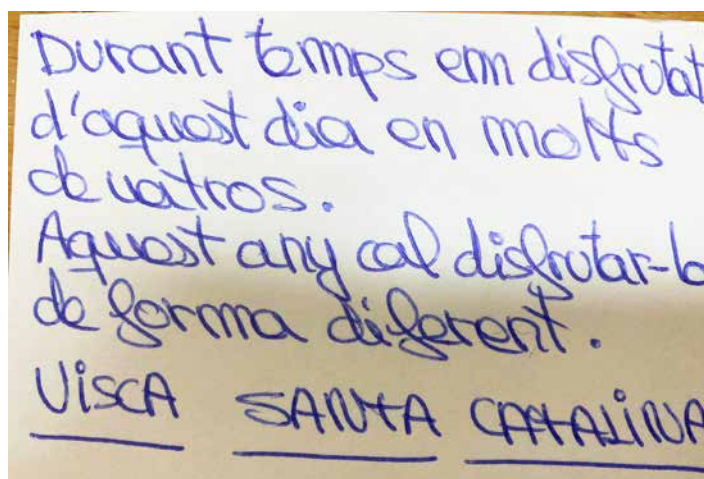 Durant temps em disfrutat
d'aquest dia en molts
de vatros.
Aquest any cal disfrutar-lo
de forma diferent.
VISCA SANTA CATALINA